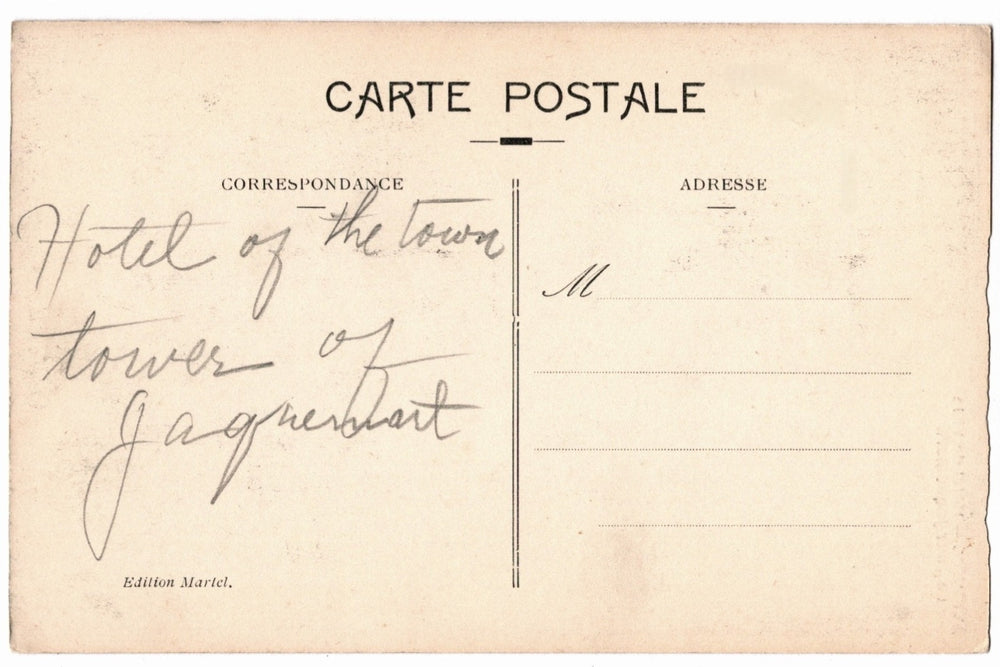 CARTE POSTALE
CORRESPONDANCE
Hotel of the town
tower of
Jaquemart
Edition Martel.
ADRESSE
M